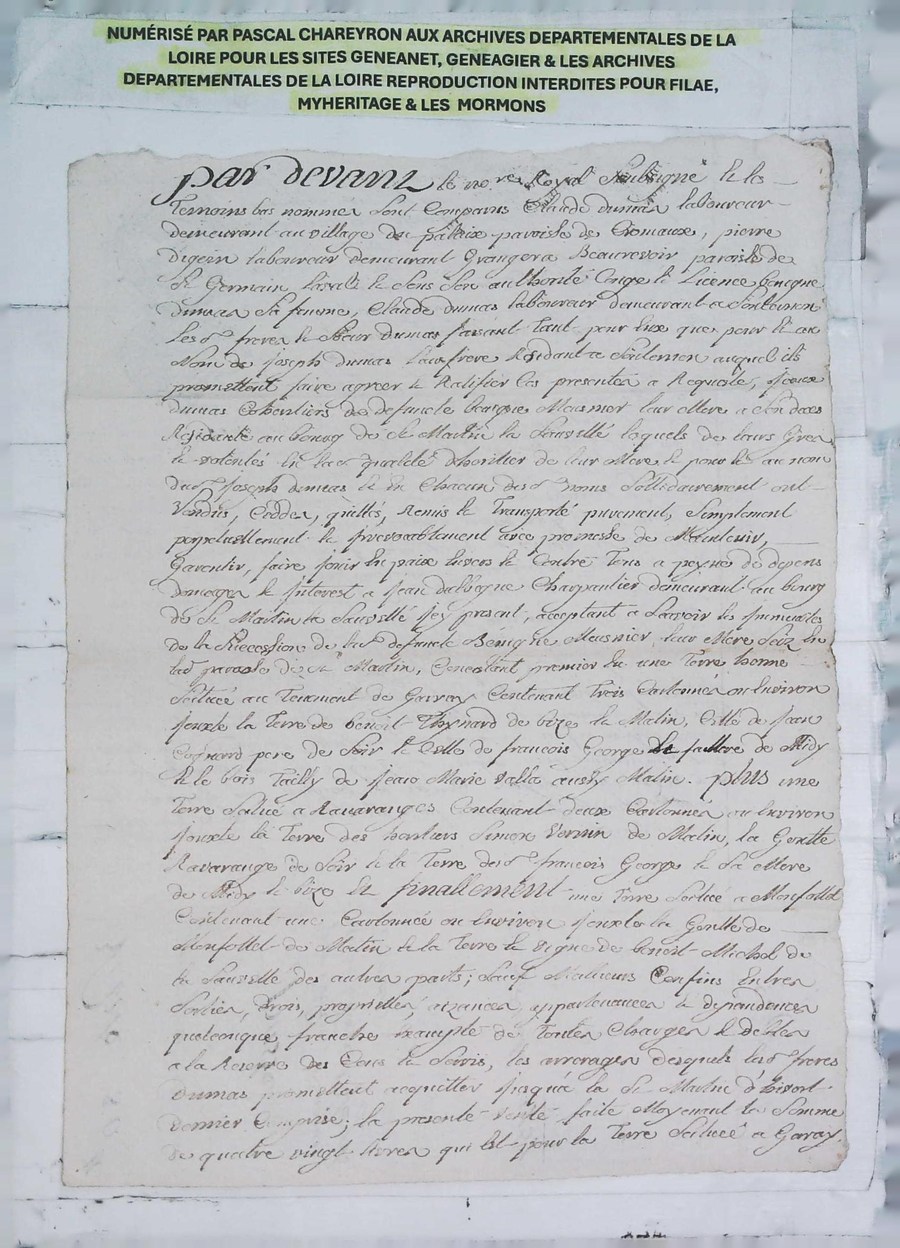 NUMÉRISÉ PAR PASCAL CHAREYRON AUX ARCHIVES DEPARTEMENTALES DE LA
LOIRE POUR LES SITES GENEANET, GENEAGIER & LES ARCHIVES
DEPARTEMENTALES DE LA LOIRE REPRODUCTION INTERDITES POUR FILAE,
MYHERITAGE & LES MORMONS
par devant le no.re Royal Soubsigné & les
Temoins bas nommes sont Comparus Claude dumas laboureur
demeurant au village du palaix paroisse de Cromaux, pierre
digoin laboureur demeurant Granger a Beaurevoir paroisse de
St Germain Laval & sous son authorité Congé & Licence benigne
dumas sa femme, Claude dumas laboureur demeurant a
les d. freres & sœur dumas faisant tant pour eux que pour & au
Nom de joseph dumas leur frere Residant a auquel ils
promettent faire agreer & Ratifier les presentes a Requeste,
dumas Coheritiers de defuncte benigne leur Mere a son deces
Residente au bourg de St Martin la Sauveté lesquels de leurs Grés
& volontés en la d. qualité d'heritier de leur Mere & pour & au nom
du d. joseph dumas & en Chacun des d. noms Sollidairement ont
Vendus, Ceddes, quittes, Remis & Transporté purement, Simplement
perpetuellement & jrrevocablement avec promesse de Maintenir,
Garentir, faire jouir en paix envers & Contre Tous a peyne de depens
domages & jnterest a jean Charpantier demeurant au bourg
de St Martin la Sauveté jcy present, acceptant a Sçavoir les jmmeubles
de la Succession de la d. defuncte Benigne Meusnier leur Mere Sciz en
lad. paroisse de St Martin, Consistant premier en une Terre bonne
Scituée au Tenement de Garray Contenant Trois Cartonnés ou Environ
jouxte la Terre de benoit de bize & Matin, Celle de jean
pere de Soir & Celle de francois George de Midy
& le bois Tailly de jean Marie aussy Matin. plus une
Terre Scituée a Ravaranges Contenant deux Cartonnés ou Environ
jouxte la Terre des heritiers Simon Vernin de Matin, la Goutte
Ravarange de Soir & la Terre des d. francois George & Sa Mere
de Midy & bize Et finallement une Terre Scituée a Monfollet
Contenant une Cartonnée ou Environ jouxte la Goutte de
Monfollet de Matin & la Terre & vigne de benoit Michel de
la Sauvetté des autres parts; Sauf Meilleurs Confins Entrées
Sorties, Drois, proprietés, aizances, appartenances & dependences
quelconque, franche exempte de Toutes Charges & debtes
a la Reserve des Cens & Servis, les arrerages desquels les d. freres
Dumas promettent acquitter jusqua la St Martin d'hivert
dernier Comprise; la presente vente faite Moyenant la Somme
de quatre vingt livres qui est pour la Terre Scituée a Garay